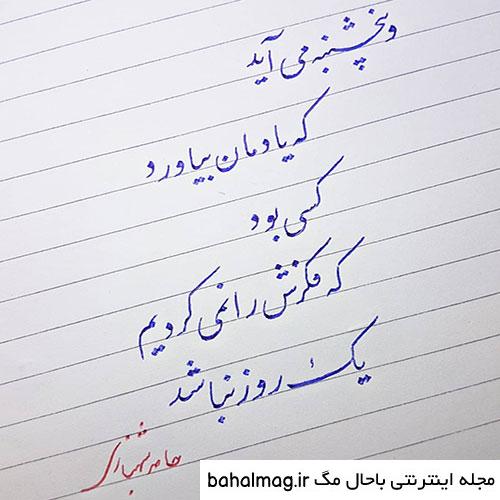 و پنجشنبه می آید
که یادمان بیاورد
کسی بود
که فکرش را نمی کردیم
یک روز نباشد
مجله اینترنتی باحال مگ bahalmag.ir